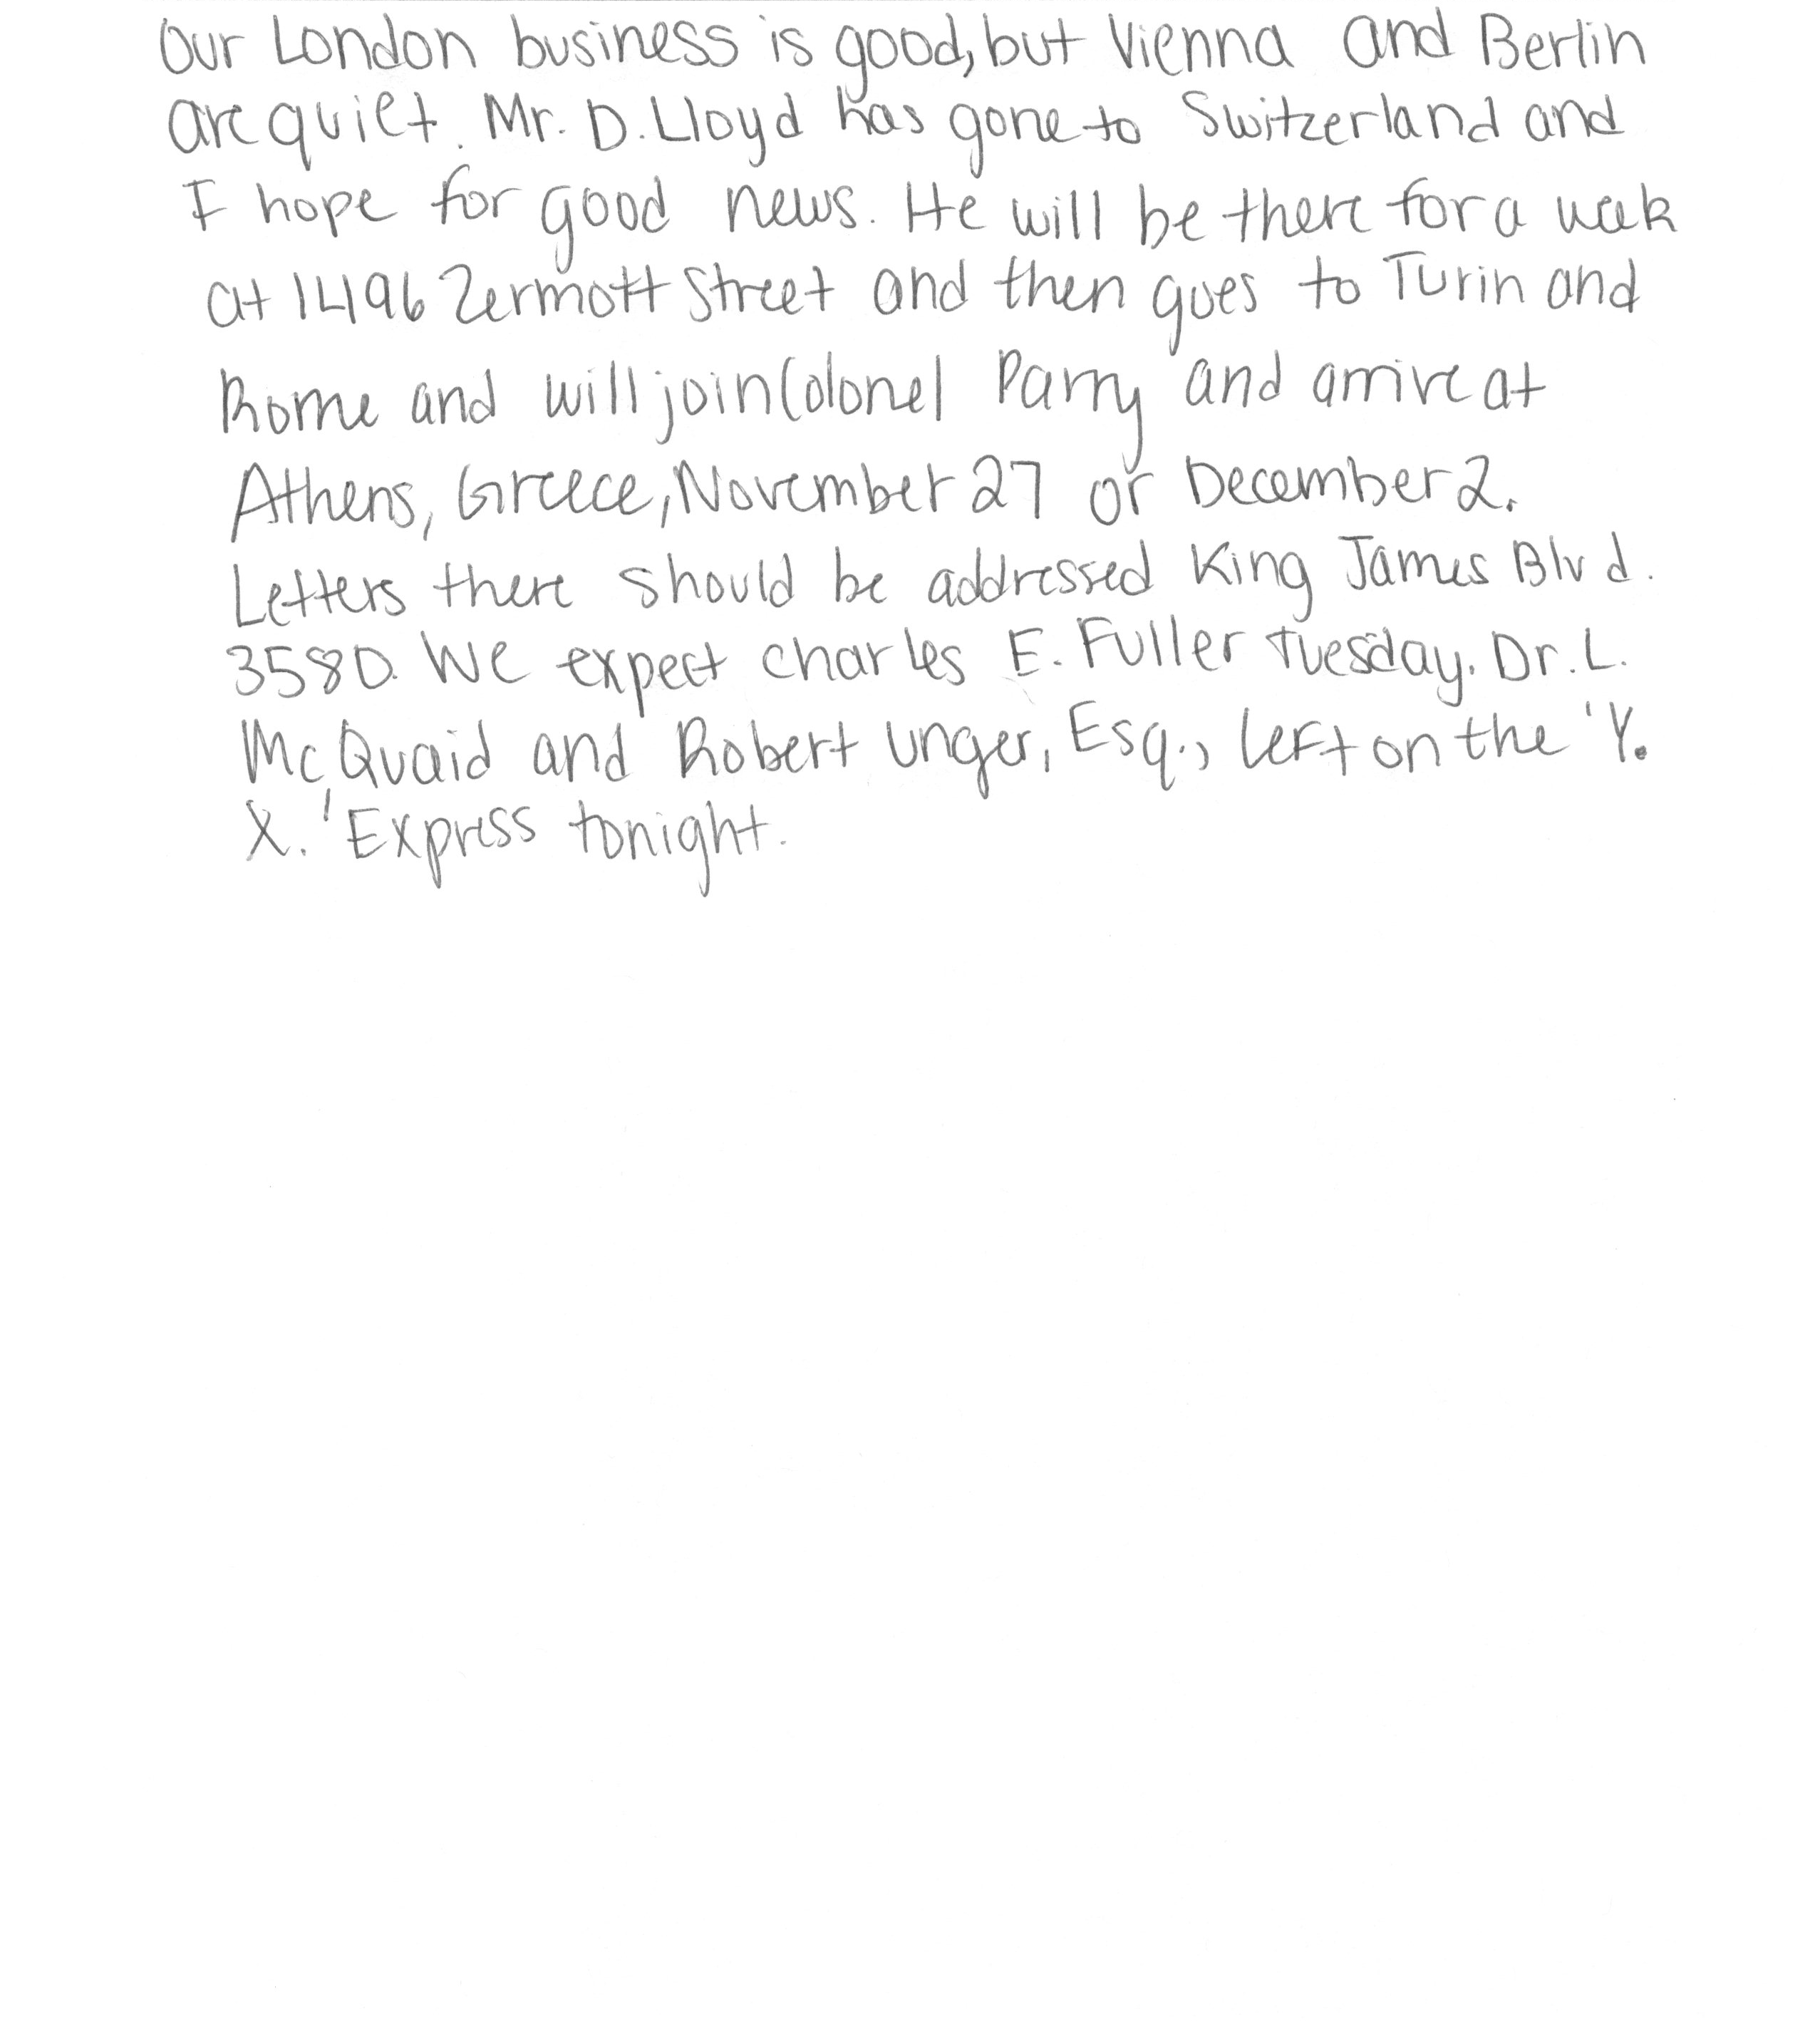 Our London business is good, but Vienna and Berlin
are quiet. Mr. D. Lloyd has gone to Switzerland and
I hope for good news. He will be there for a week
at 1496 Zermott Street and then goes to Turin and
Rome and will join Colonel Parry and arrive at
Athens, Greece, November 27 or December 2.
Letters there should be addressed King James Blvd.
3580. We expect Charles E. Fuller Tuesday. Dr. L.
McQuaid and Robert Unger, Esq., left on the 'Y.
X.' Express tonight.